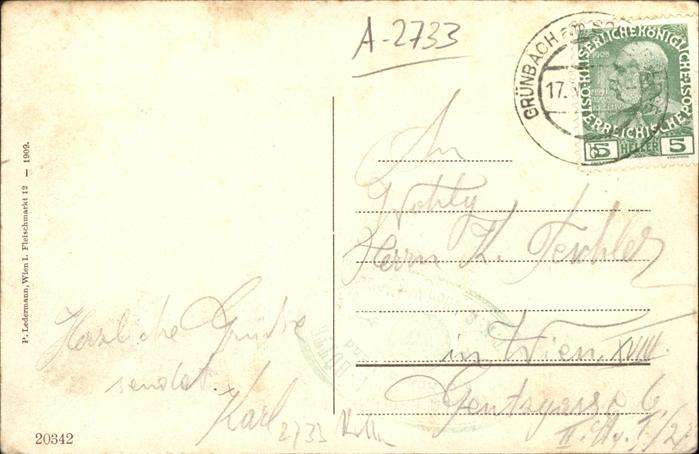 A-2733
GRÜNBACH am
17.
KAISERLICHE KÖNIGLICHE
ÖSTERREICHISCHE
5 HELLER 5
P. Ledermann, Wien I. Fleischmarkt 12 — 1909.
An
Herrn K. Teschler
in Wien XVIII
Gentzgasse 6
Herzliche Grüße
sendet
Karl
2733
20342